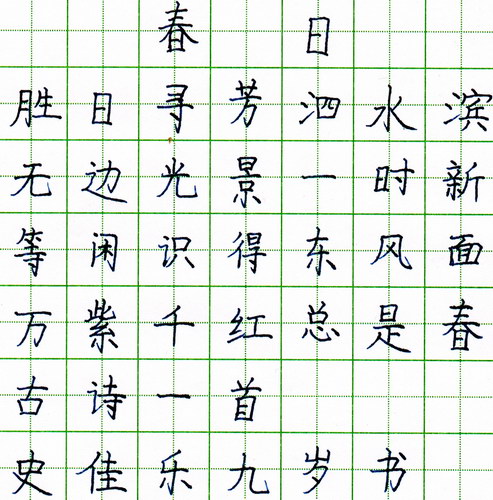 春日
胜日寻芳泗水滨
无边光景一时新
等闲识得东风面
万紫千红总是春
古诗一首
史佳乐九岁书